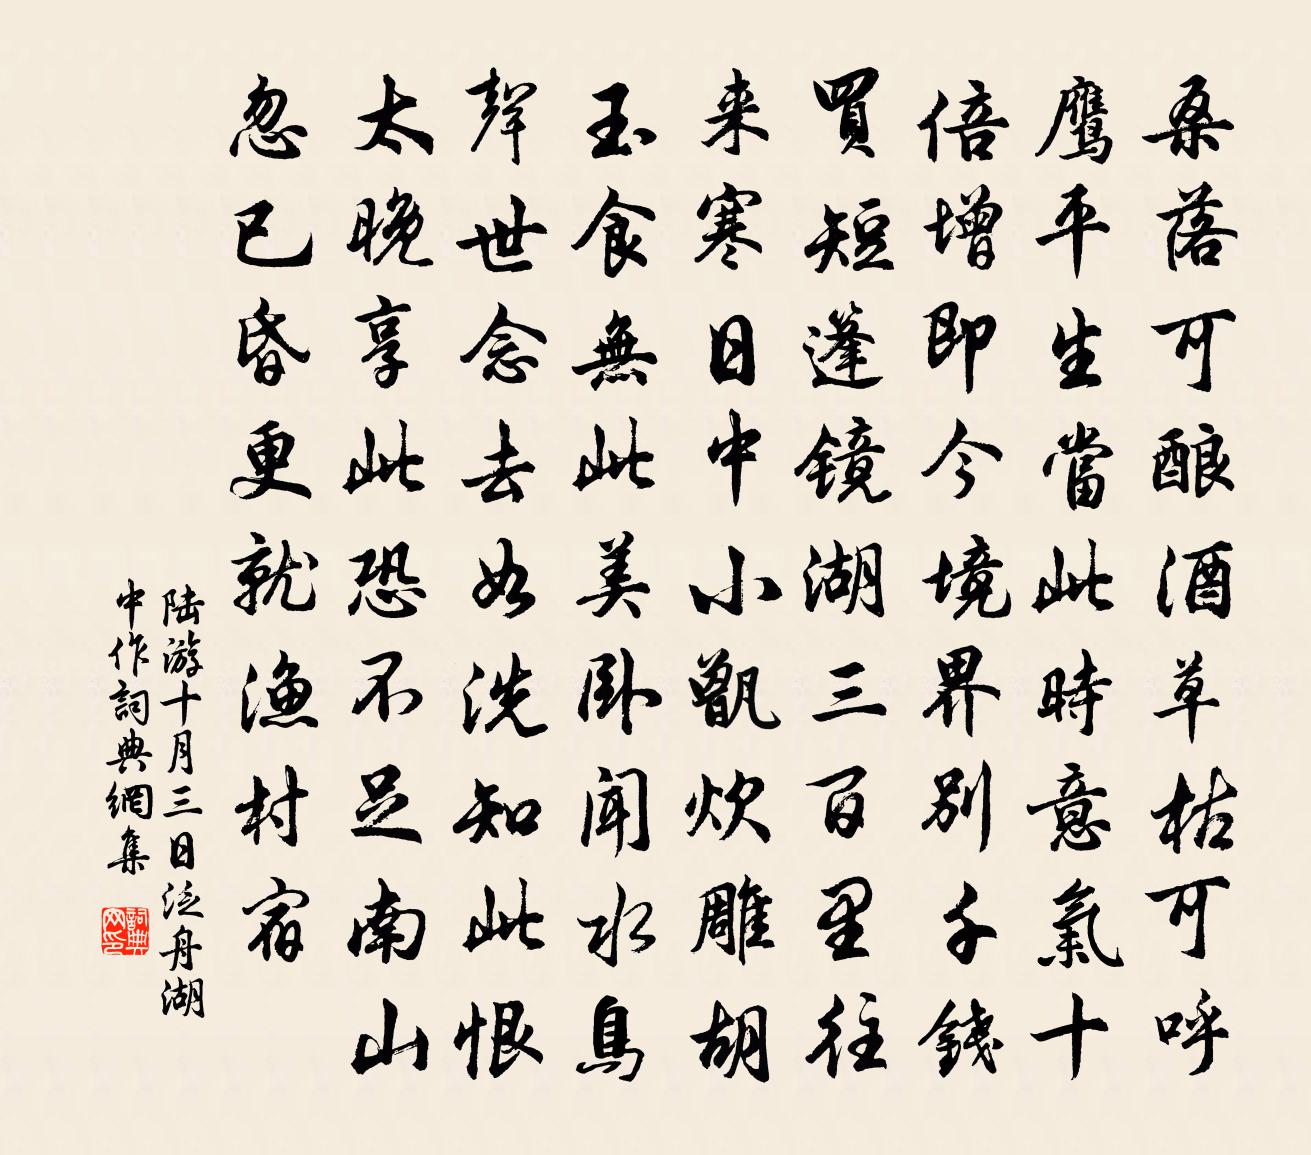 桑落可酿酒草枯可呼
鷹平生當此時意氣十
倍增即今境界別千錢
買短蓬鏡湖三百里往
来寒日中小甑炊雕胡
玉食無此美卧聞水鳥
聲世念去如洗知此恨
太晚享此恐不足南山
忽已昏更就漁村宿
陆游十月三日泛舟湖
中作詞典網集
詞典网印